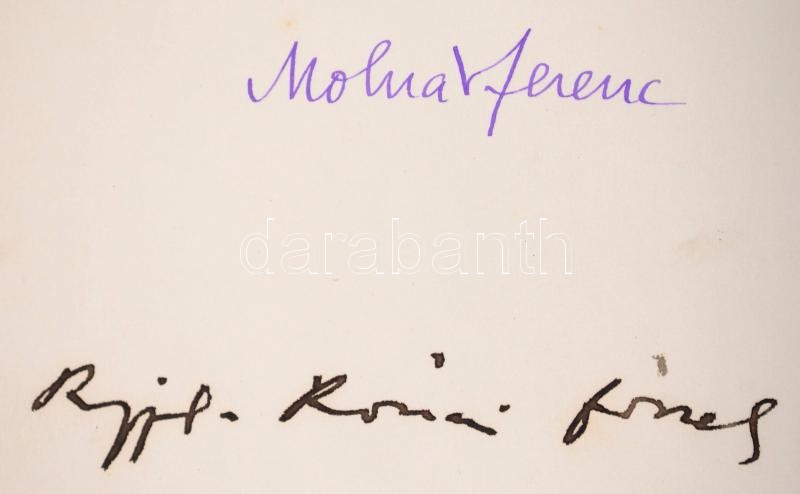 Molnár Ferenc
darabanth
Rippl-Rónai József